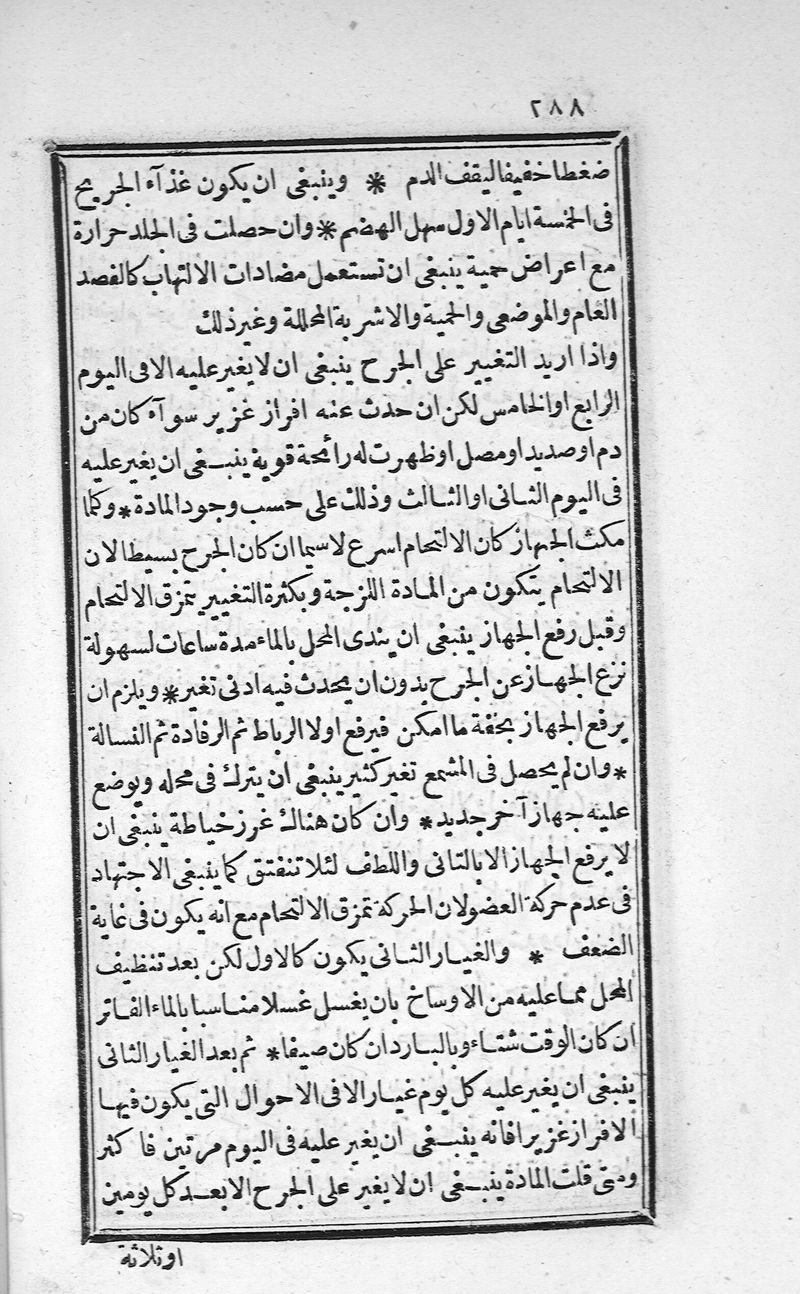 ٢٨٨
ضغطا خفيفا ليقف الدم * وينبغى ان يكون غذآء الجريح
فى الخمسة ايام الاول سهل الهضم * وان حصلت فى الجلد حرارة
مع اعراض حمية ينبغى ان تستعمل مضادات الالتهاب كالفصد
العام والموضعى والحمية والاشربة المحللة وغير ذلك
واذا اريد التغيير على الجرح ينبغى ان لا يغير عليه الا فى اليوم
الرابع او الخامس لكن ان حدث عنه افراز غزير سوآء كان من
دم او صديد او مصل او ظهرت له رائحة قوية ينبغى ان يغير عليه
فى اليوم الثانى او الثالث وذلك على حسب وجود المادة * وكلما
مكث الجهاز كان الالتحام اسرع لاسيما ان كان الجرح بسيطا لان
الالتحام يتكون من المادة اللزجة وبكثرة التغيير يتمزق الالتحام
وقبل رفع الجهاز ينبغى ان يندى المحل بالماء مدة ساعات لسهولة
نزع الجهاز عن الجرح بدون ان يحدث فيه ادنى تغير * ويلزم ان
يرفع الجهاز بخفة ما امكن فيرفع اولا الرباط ثم الرفادة ثم النسالة
* وان لم يحصل فى المشمع تغير كثير ينبغى ان يترك فى محله ويوضع
عليه جهاز آخر جديد * وان كان هناك غرز خياطة ينبغى ان
لا يرفع الجهاز الا بالتانى واللطف لئلا تنفتق كما ينبغى الاجتهاد
فى عدم حركة العضو لان الحركة تمزق الالتحام مع انه يكون فى غاية
الضعف * والغيار الثانى يكون كالاول لكن بعد تنظيف
المحل مما عليه من الاوساخ بان يغسل غسلا مناسبا بالماء الفاتر
ان كان الوقت شتاء وبالبارد ان كان صيفا * ثم بعد الغيار الثانى
ينبغى ان يغير عليه كل يوم غيار الا فى الاحوال التى يكون فيها
الافراز غزيرا فانه ينبغى ان يغير عليه فى اليوم مرتين فاكثر
ومتى قلت المادة ينبغى ان لا يغير على الجرح الا بعد كل يومين
او ثلاثة